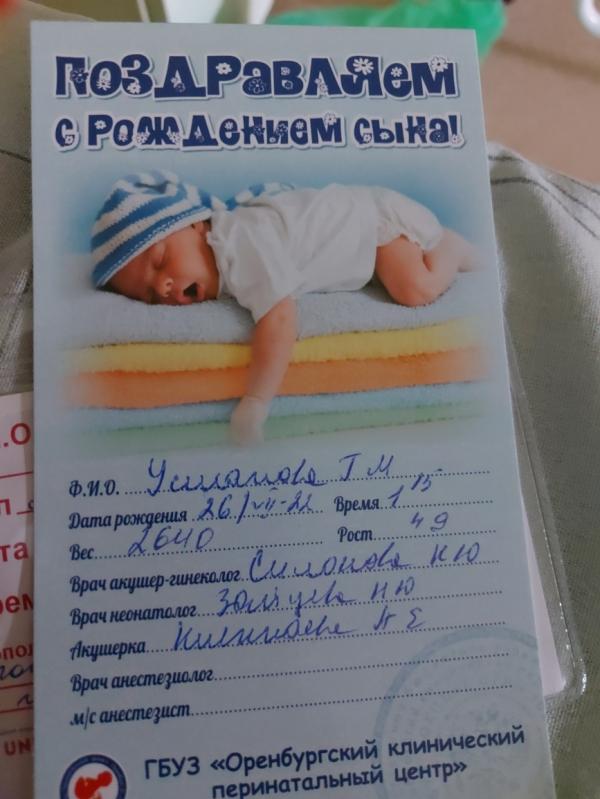 ПОЗДРАВЛЯЕМ
С РОЖДЕНИЕМ СЫНА!
Ф.И.О. Т М
Дата рождения 26/VII-22 Время 1 15
Вес 2640 Рост 49
Врач акушер-гинеколог Н Ю
Врач неонатолог Н Ю
Акушерка
Врач анестезиолог
м/с анестезист
ГБУЗ «Оренбургский клинический
перинатальный центр»